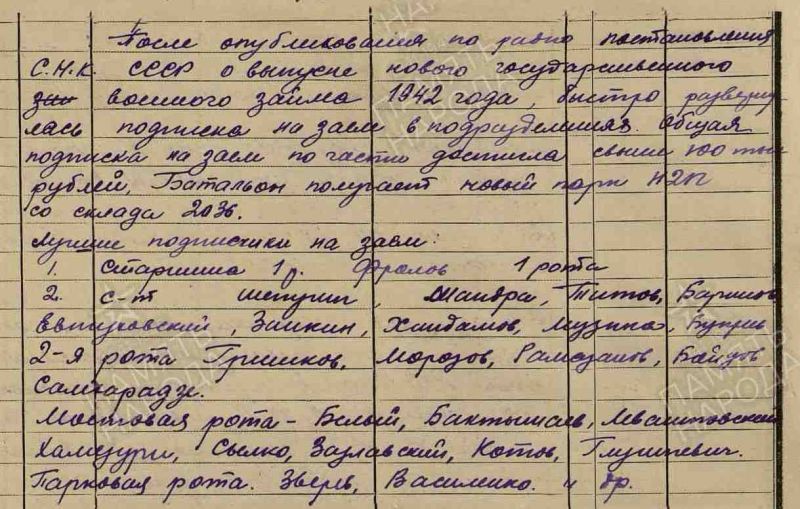 После опубликования по радио постановления
С.Н.К. СССР о выпуске нового государственного
военного займа 1942 года, быстро разверну
лась подписка на заем в подразделениях. Общая
подписка на заем по части достигла свыше 100 тыс
рублей, Батальон получает новый парк Н2П
со склада 2036.
Лучшие подписчики на заем:
1. Старшина 1 р. Фролов 1 рота
2. с-нт Шандра, Титов,
Заикин,
2-я рота Гришков, Морозов, Рамазанов,
Самхарадзе.
Мостовая рота - Белый, Бактышаев, Леваштовский
Сылко, Заславский, Котов, Глушневич.
Парковая рота. Зверев, Василенко. и др.
ПАМЯТЬ НАРОДА